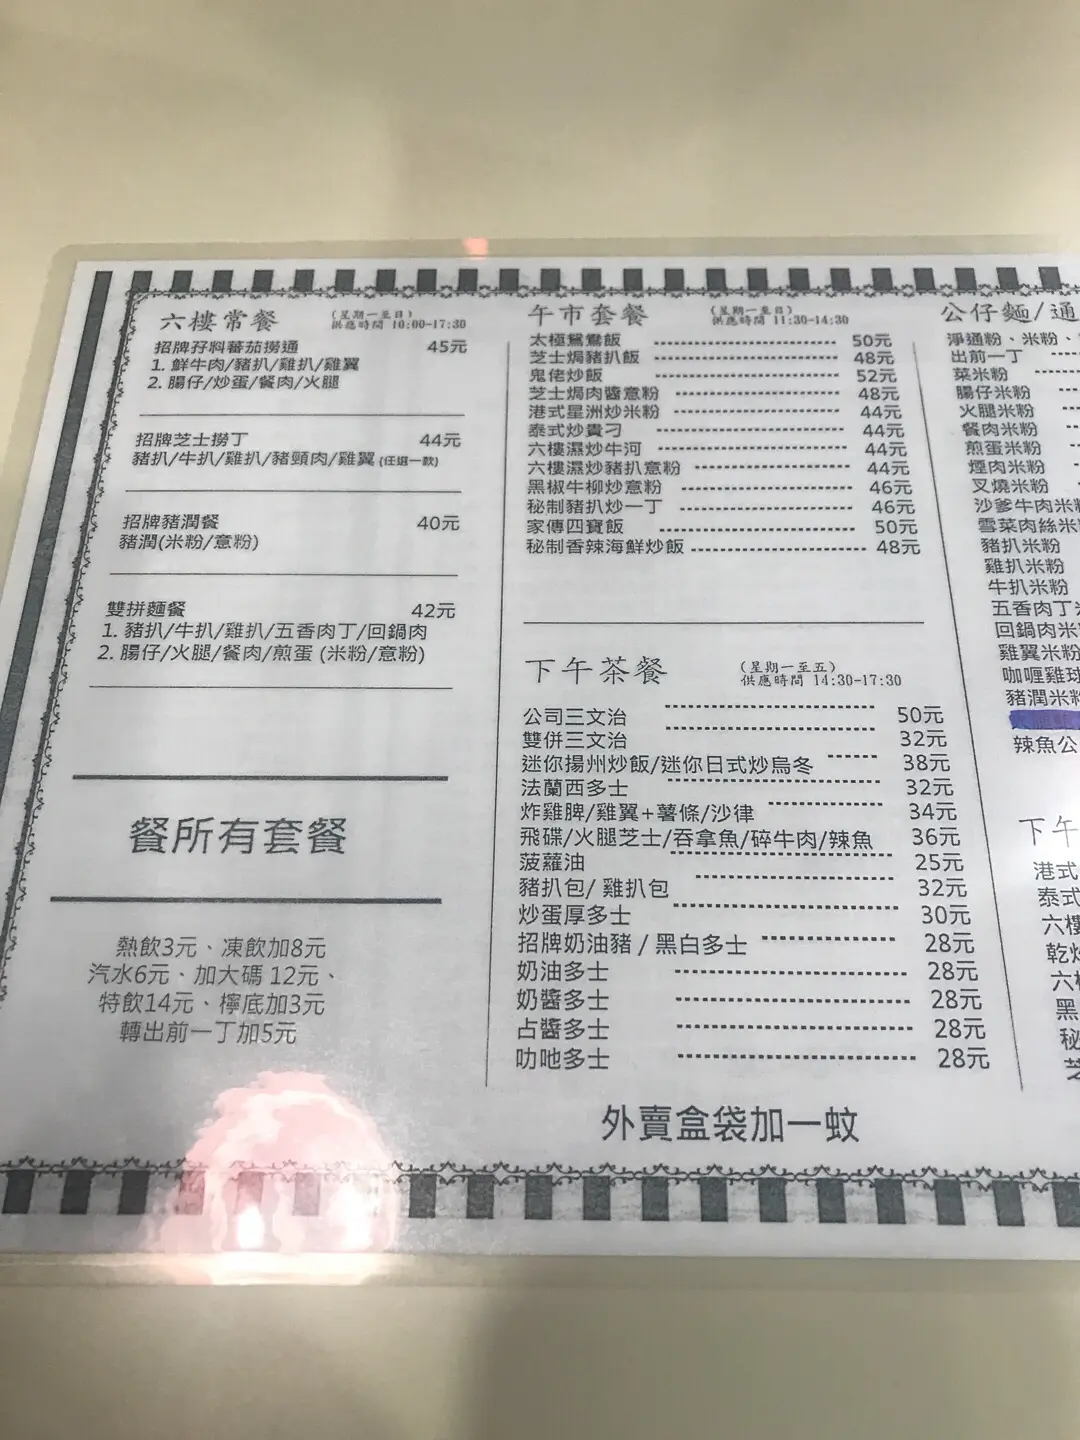 六樓常餐
（星期一至日）
供應時間 10:00-17:30
招牌孖料蕃茄撈通 45元
1. 鮮牛肉/豬扒/雞扒/雞翼
2. 腸仔/炒蛋/餐肉/火腿
招牌芝士撈丁 44元
豬扒/牛扒/雞扒/豬頸肉/雞翼 (任選一款)
招牌豬潤餐 40元
豬潤(米粉/意粉)
雙拼麵餐 42元
1. 豬扒/牛扒/雞扒/五香肉丁/回鍋肉
2. 腸仔/火腿/餐肉/煎蛋 (米粉/意粉)
餐所有套餐
熱飲3元、凍飲加8元
汽水6元、加大碼 12元、
特飲14元、檸底加3元
轉出前一丁加5元
午市套餐
（星期一至日）
供應時間 11:30-14:30
太極鴛鴦飯 50元
芝士焗豬扒飯 48元
鬼佬炒飯 52元
芝士焗肉醬意粉 48元
港式星洲炒米粉 44元
泰式炒貴刁 44元
六樓濕炒牛河 44元
六樓濕炒豬扒意粉 44元
黑椒牛柳炒意粉 46元
秘制豬扒炒一丁 46元
家傳四寶飯 50元
秘制香辣海鮮炒飯 48元
下午茶餐
（星期一至五）
供應時間 14:30-17:30
公司三文治 50元
雙併三文治 32元
迷你揚州炒飯/迷你日式炒烏冬 38元
法蘭西多士 32元
炸雞脾/雞翼+薯條/沙律 34元
飛碟/火腿芝士/吞拿魚/碎牛肉/辣魚 36元
菠蘿油 25元
豬扒包/ 雞扒包 32元
炒蛋厚多士 30元
招牌奶油豬 / 黑白多士 28元
奶油多士 28元
奶醬多士 28元
占醬多士 28元
叻吔多士 28元
外賣盒袋加一蚊
公仔麵/通
淨通粉、米粉、
出前一丁
菜米粉
腸仔米粉
火腿米粉
餐肉米粉
煎蛋米粉
煙肉米粉
叉燒米粉
沙爹牛肉米
雪菜肉絲米
豬扒米粉
雞扒米粉
牛扒米粉
五香肉丁
回鍋肉米
雞翼米粉
咖喱雞球
豬潤米粉
辣魚公
下午
港式
泰式
六樓
乾炒
六樓
黑
秘
芝